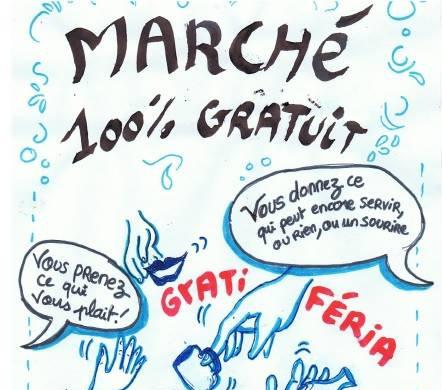 MARCHÉ
100% GRATUIT
Vous donnez ce
qui peut encore servir,
ou rien, ou un sourire
Vous prenez
ce qui
vous plait!
GRATI
FÉRIA